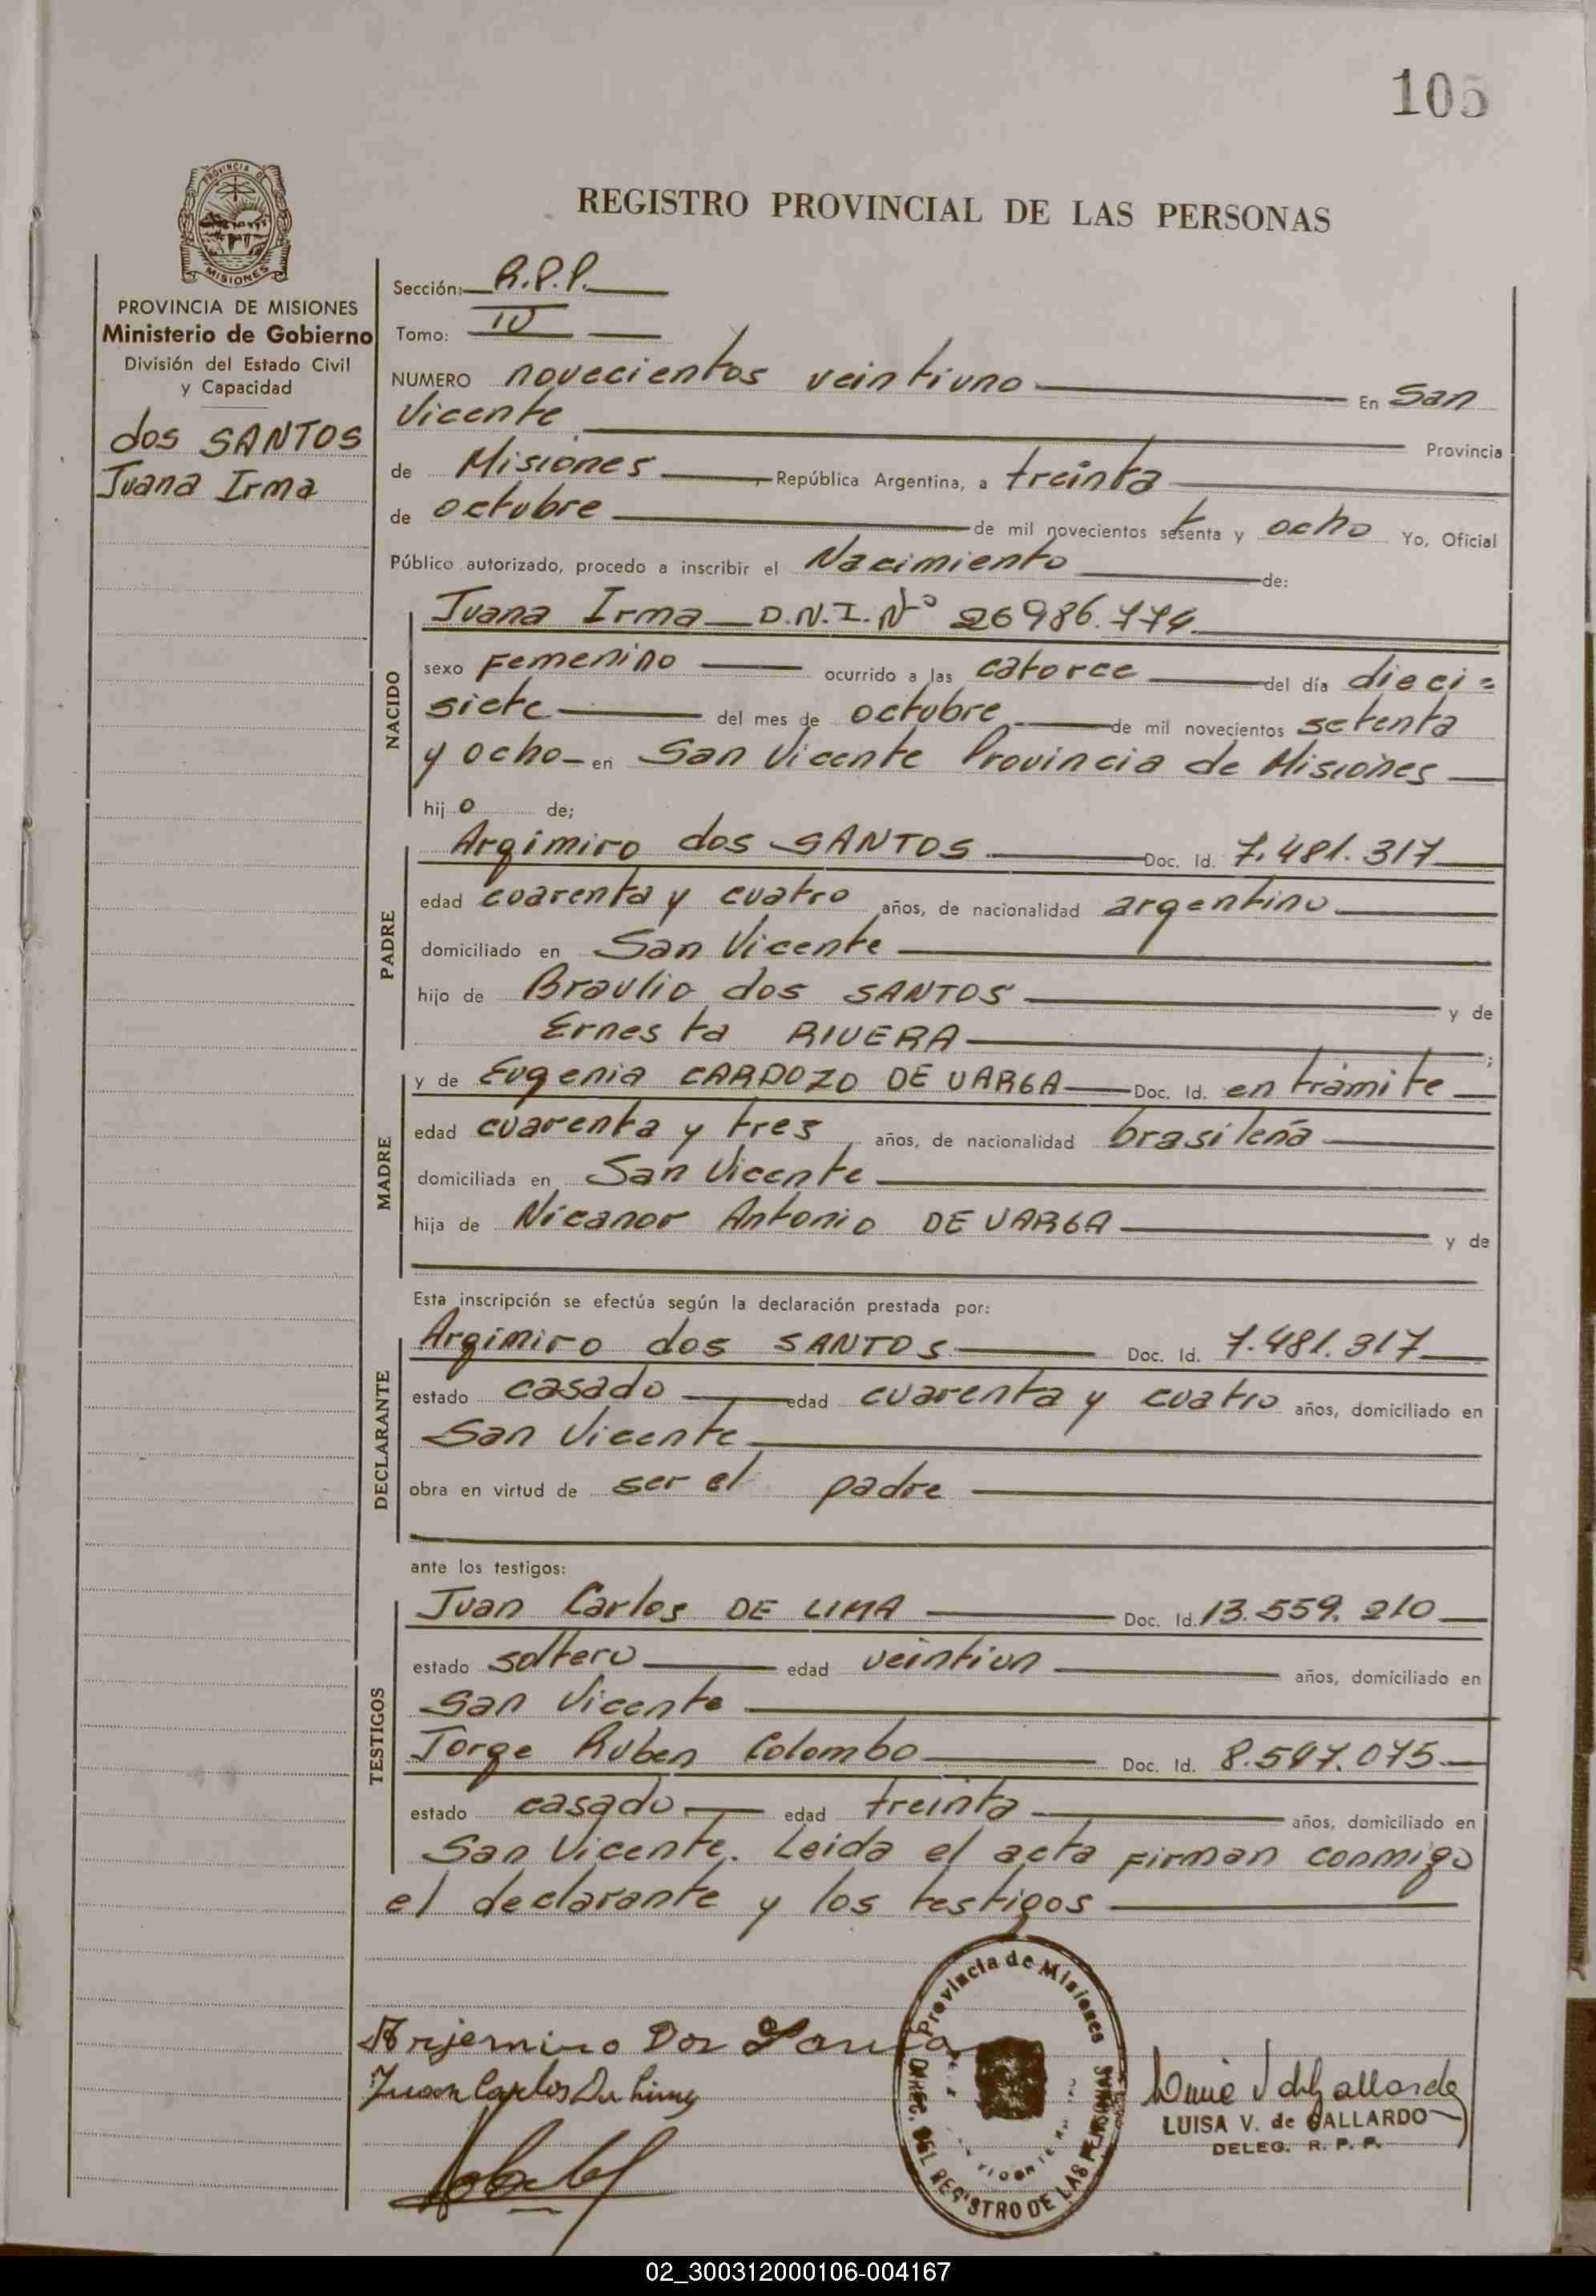 105
PROVINCIA DE
MISIONES
REGISTRO PROVINCIAL DE LAS PERSONAS
PROVINCIA DE MISIONES
Ministerio de Gobierno
División del Estado Civil
y Capacidad
dos SANTOS
Juana Irma
Sección: R.P.P.
Tomo: IV
NUMERO novecientos veintiuno En San
Vicente Provincia
de Misiones República Argentina, a treinta
de octubre de mil novecientos setenta y ocho Yo, Oficial
Público autorizado, procedo a inscribir el Nacimiento de:
NACIDO
Juana Irma D.N.I. Nº 26986.774
sexo Femenino ocurrido a las catorce del día dieci=
siete del mes de octubre de mil novecientos setenta
y ocho en San Vicente Provincia de Misiones
hijo de;
PADRE
Argimiro dos SANTOS Doc. Id. 7.481.317
edad cuarenta y cuatro años, de nacionalidad argentino
domiciliado en San Vicente
hijo de Braulio dos SANTOS y de
Ernesta RIVERA ;
MADRE
y de Eugenia CARDOZO DE VARGA Doc. Id. en trámite
edad cuarenta y tres años, de nacionalidad brasileña
domiciliada en San Vicente
hija de Nicanor Antonio DE VARGA y de
Esta inscripción se efectúa según la declaración prestada por:
DECLARANTE
Argimiro dos SANTOS Doc. Id. 7.481.317
estado casado edad cuarenta y cuatro años, domiciliado en
San Vicente
obra en virtud de ser el padre
ante los testigos:
TESTIGOS
Juan Carlos DE LIMA Doc. Id. 13.559.210
estado soltero edad veintiun años, domiciliado en
San Vicente
Jorge Ruben Colombo Doc. Id. 8.547.075
estado casado edad treinta años, domiciliado en
San Vicente. Leida el acta Firman conmigo
el declarante y los testigos
Arjemino Dos Santos
Juan Carlos De Lima
Provincia de Misiones
DIREC. DEL REGISTRO DE LAS PERSONAS
LUISA V. de GALLARDO
DELEG. R. P. P.
02_300312000106-004167